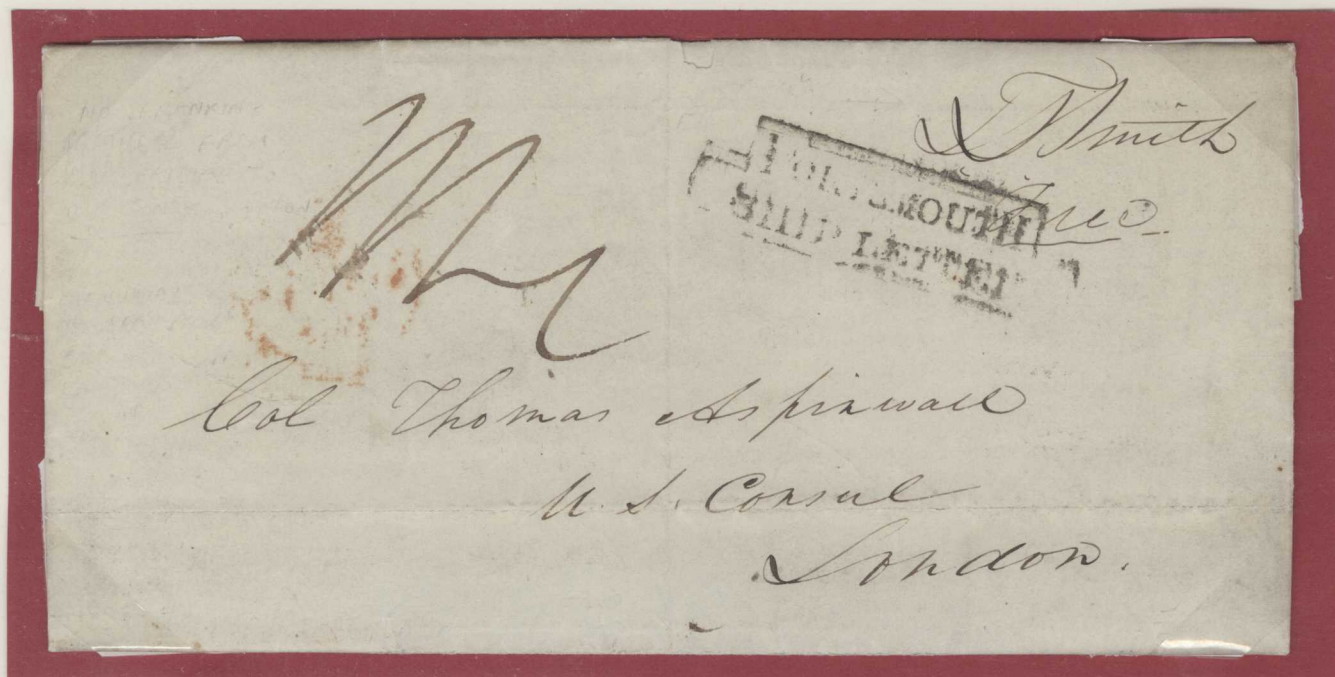 T Smith
Free
PORTSMOUTH
SHIP LETTER
Col Thomas Aspinwall
U. S. Consul
London.